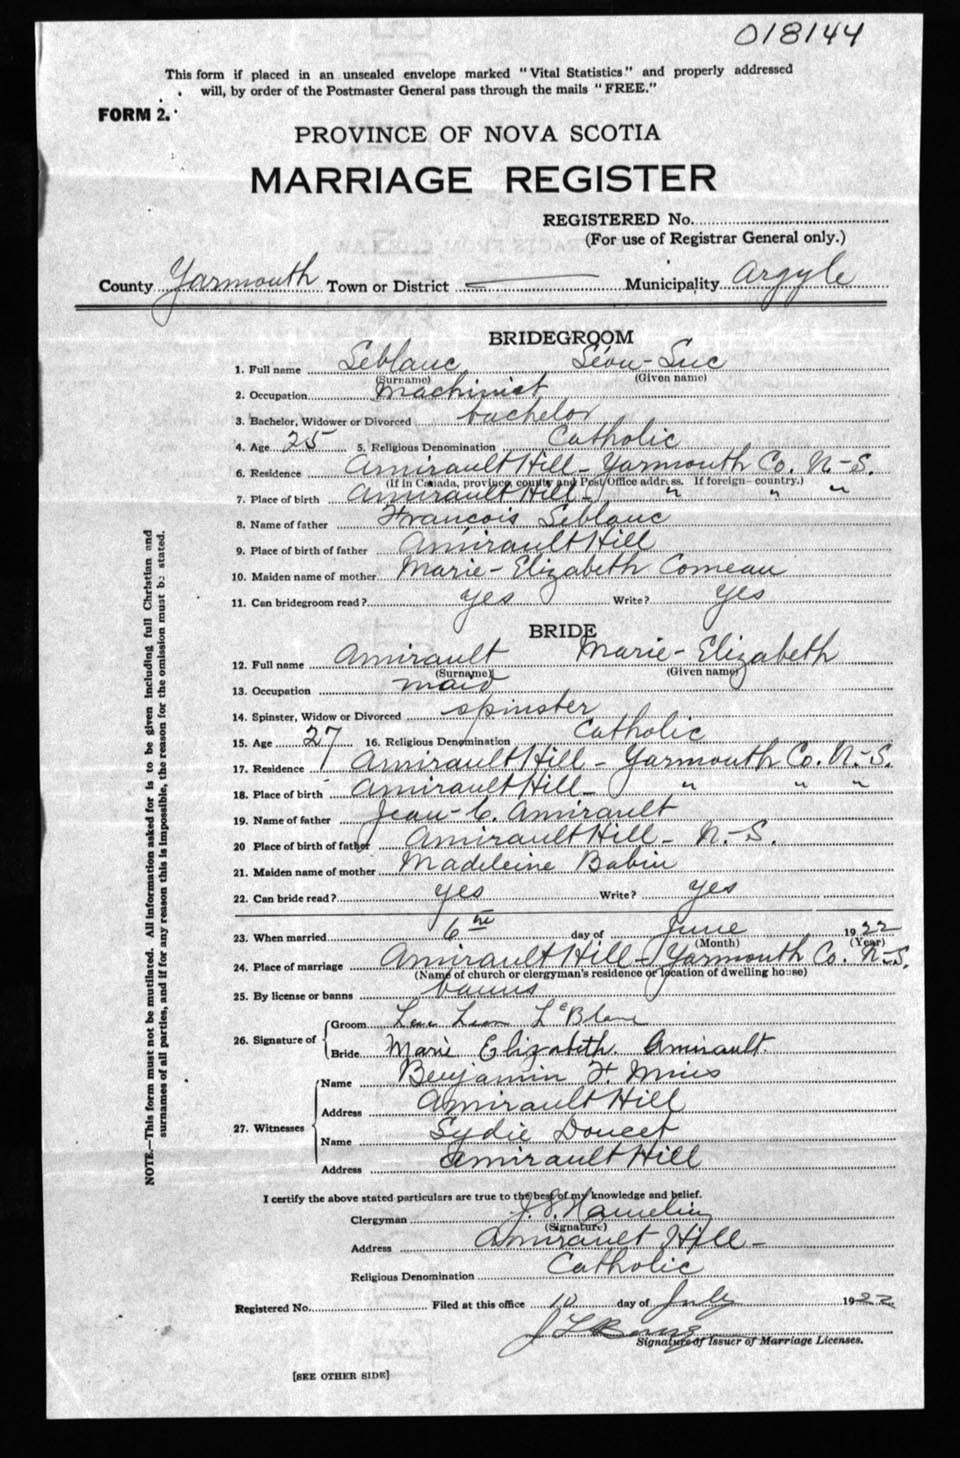 018144
This form if placed in an unsealed envelope marked "Vital Statistics" and properly addressed
will, by order of the Postmaster General pass through the mails "FREE."
FORM 2.
PROVINCE OF NOVA SCOTIA
MARRIAGE REGISTER
REGISTERED No.
(For use of Registrar General only.)
County Yarmouth Town or District Municipality Argyle
BRIDEGROOM
1. Full name Leblanc Léon-Luc
(Surname) (Given name)
2. Occupation Machinist
3. Bachelor, Widower or Divorced bachelor
4. Age 25 5. Religious Denomination Catholic
6. Residence Amirault Hill - Yarmouth Co. N-S.
(If in Canada, province, county and Post Office address. If foreign—country.)
7. Place of birth Amirault Hill - " " "
8. Name of father François Leblanc
9. Place of birth of father Amirault Hill
10. Maiden name of mother Marie-Elizabeth Comeau
11. Can bridegroom read? yes Write? yes
BRIDE
12. Full name Amirault Marie-Elizabeth
(Surname) (Given name)
13. Occupation maid
14. Spinster, Widow or Divorced spinster
15. Age 27 16. Religious Denomination Catholic
17. Residence Amirault Hill - Yarmouth Co. N.-S.
18. Place of birth Amirault Hill - " " "
19. Name of father Jean-C. Amirault
20 Place of birth of father Amirault Hill - N.-S.
21. Maiden name of mother Madeleine Babin
22. Can bride read? yes Write? yes
23. When married 6th day of June 1922
(Month) (Year)
24. Place of marriage Amirault Hill - Yarmouth Co. N-S.
(Name of church or clergyman's residence or location of dwelling house)
25. By license or banns banns
26. Signature of
Groom Luc Leon LeBlanc
Bride Marie Elizabeth Amirault.
27. Witnesses
Name Benjamin F. Muis
Address Amirault Hill
Name Lydie Doucet
Address Amirault Hill
I certify the above stated particulars are true to the best of my knowledge and belief.
Clergyman Hamelin
(Signature)
Address Amirault Hill -
Religious Denomination Catholic
Registered No. Filed at this office 10 day of July 1922
Signature of Issuer of Marriage Licenses.
[SEE OTHER SIDE]
NOTE.—This form must not be mutilated. All information asked for is to be given including full Christian and
surnames of all parties, and if for any reason this is impossible, the reason for the omission must be stated.